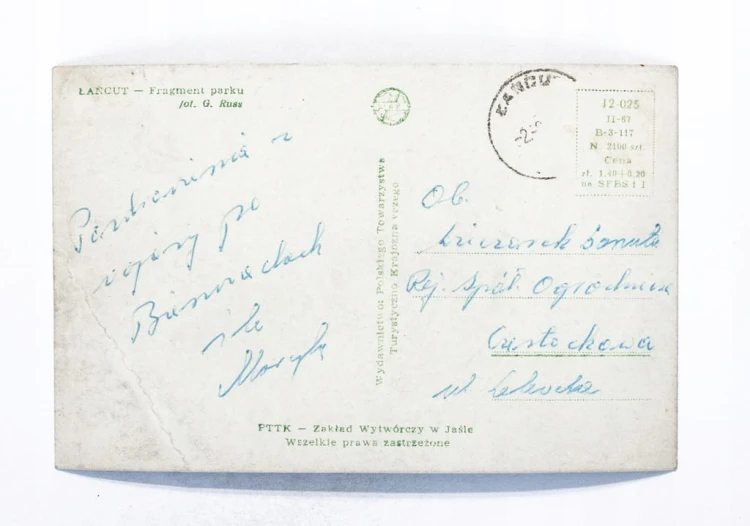 ŁAŃCUT — Fragment parku
fot. G. Russ
ŁAŃCUT
12-025
II-67
B-3-117
N. 2100 szt.
Cena
zł. 1,40+0,20
na SFBS i I
Pozdrowienia z
po
Bieszczadach
śle
Wydawnictwo Polskiego Towarzystwa
Turystyczno Krajoznawczego
Ob.
Danuta
Rej. Spół. Ogrodnicza
Częstochowa
ul.
PTTK — Zakład Wytwórczy w Jaśle
Wszelkie prawa zastrzeżone